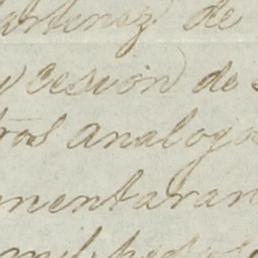 artinez de
y cesion de
tros analogo
mentaran